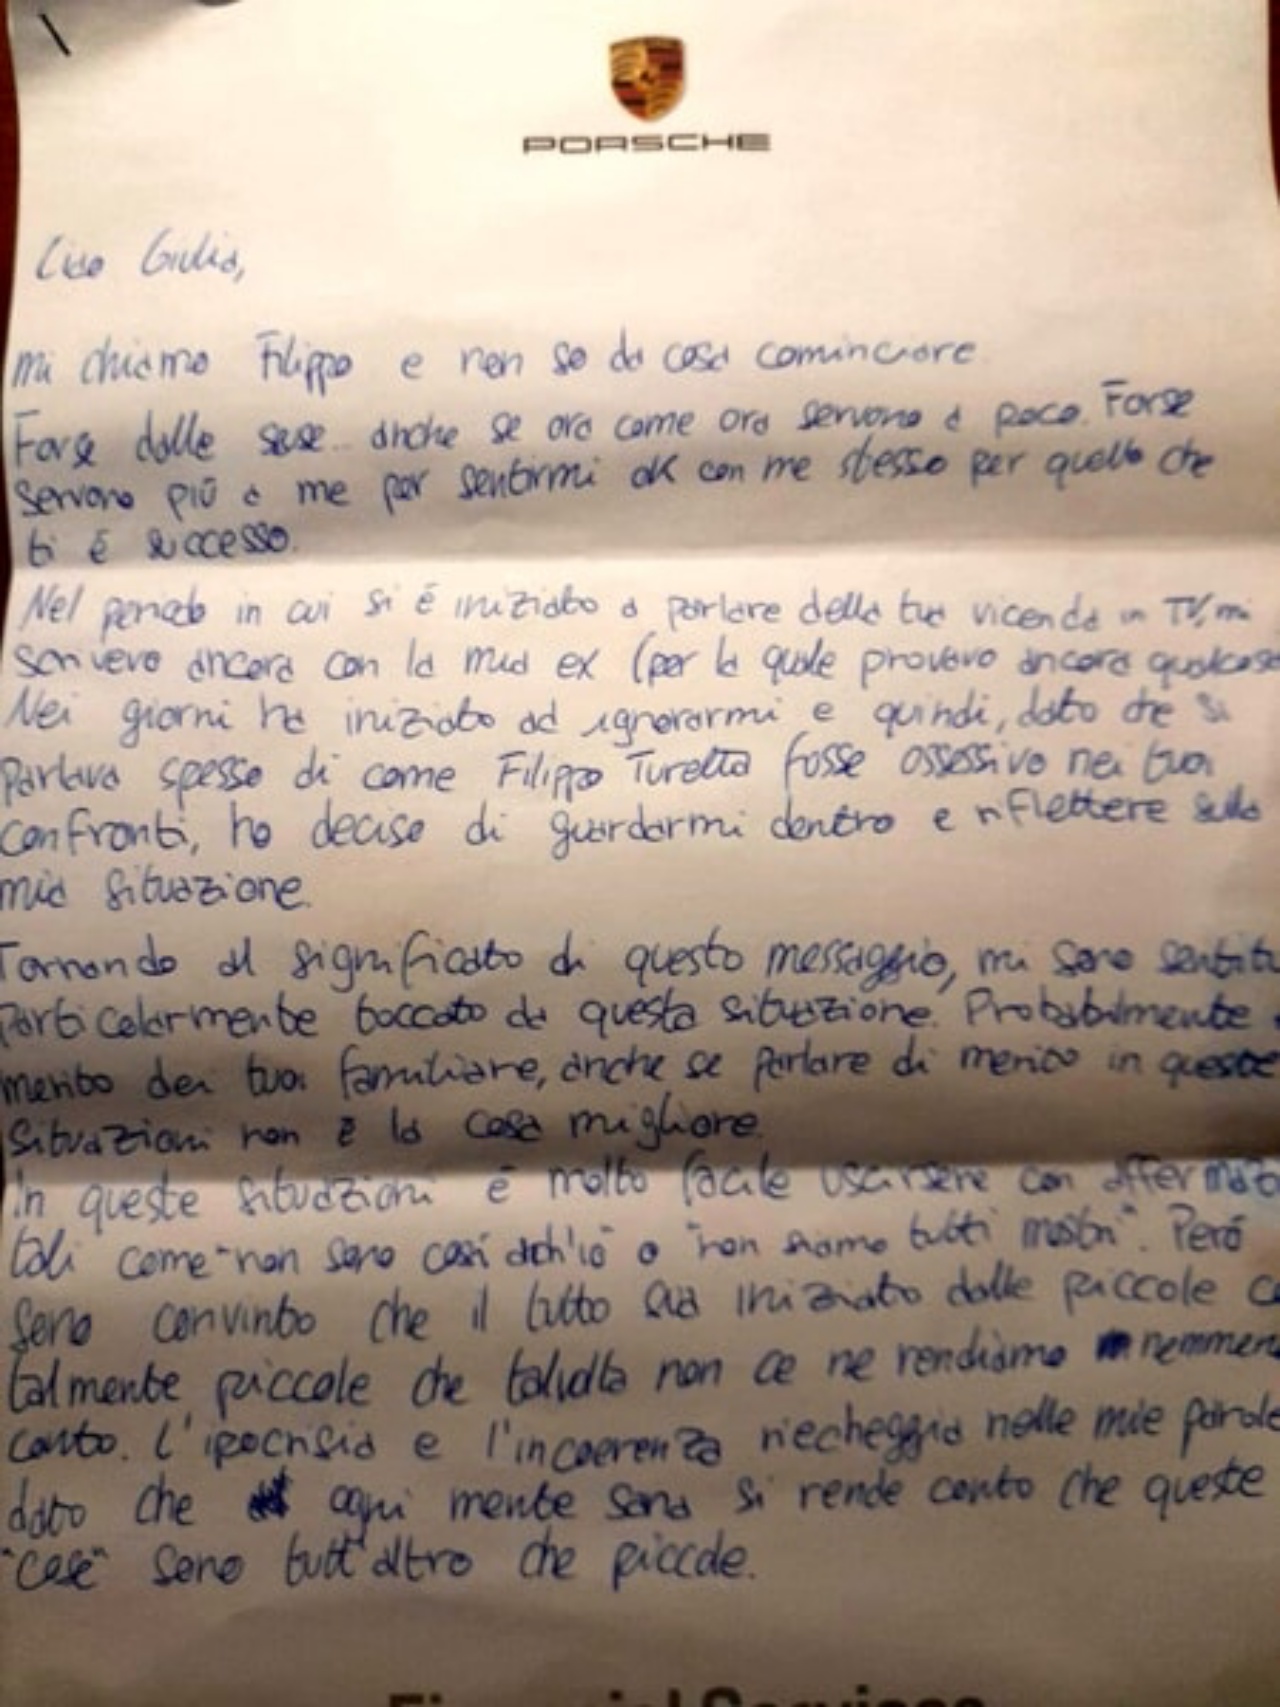 PORSCHE
Ciao Giulia,
mi chiamo Filippo e non so da cosa cominciare.
Forse dalle scuse.. anche se ora come ora servono a poco. Forse
servono più a me per sentirmi ok con me stesso per quello che
ti è successo.
Nel periodo in cui si è iniziato a parlare della tua vicenda in TV, mi
scrivevo ancora con la mia ex (per la quale provavo ancora qualcosa
Nei giorni ha iniziato ad ignorarmi e quindi, dato che si
parlava spesso di come Filippo Turetta fosse ossessivo nei tuoi
confronti, ho deciso di guardarmi dentro e riflettere sulla
mia situazione.
Tornando al significato di questo messaggio, mi sono
particolarmente toccato da questa situazione. Probabilmente
merito dei tuoi familiare, anche se parlare di merito in queste
situazioni non è la cosa migliore.
In queste situazioni è molto facile uscirsene con
tali come "non sono così anch'io" o "non siamo tutti mostri". Però
sono convinto che il tutto sia iniziato dalle piccole
talmente piccole che talvolta non ce ne rendiamo
conto. L'ipocrisia e l'incoerenza riecheggia nelle mie parole
dato che ogni mente sana si rende conto che queste
"cose" sono tutt'altro che piccole.
Financial Services